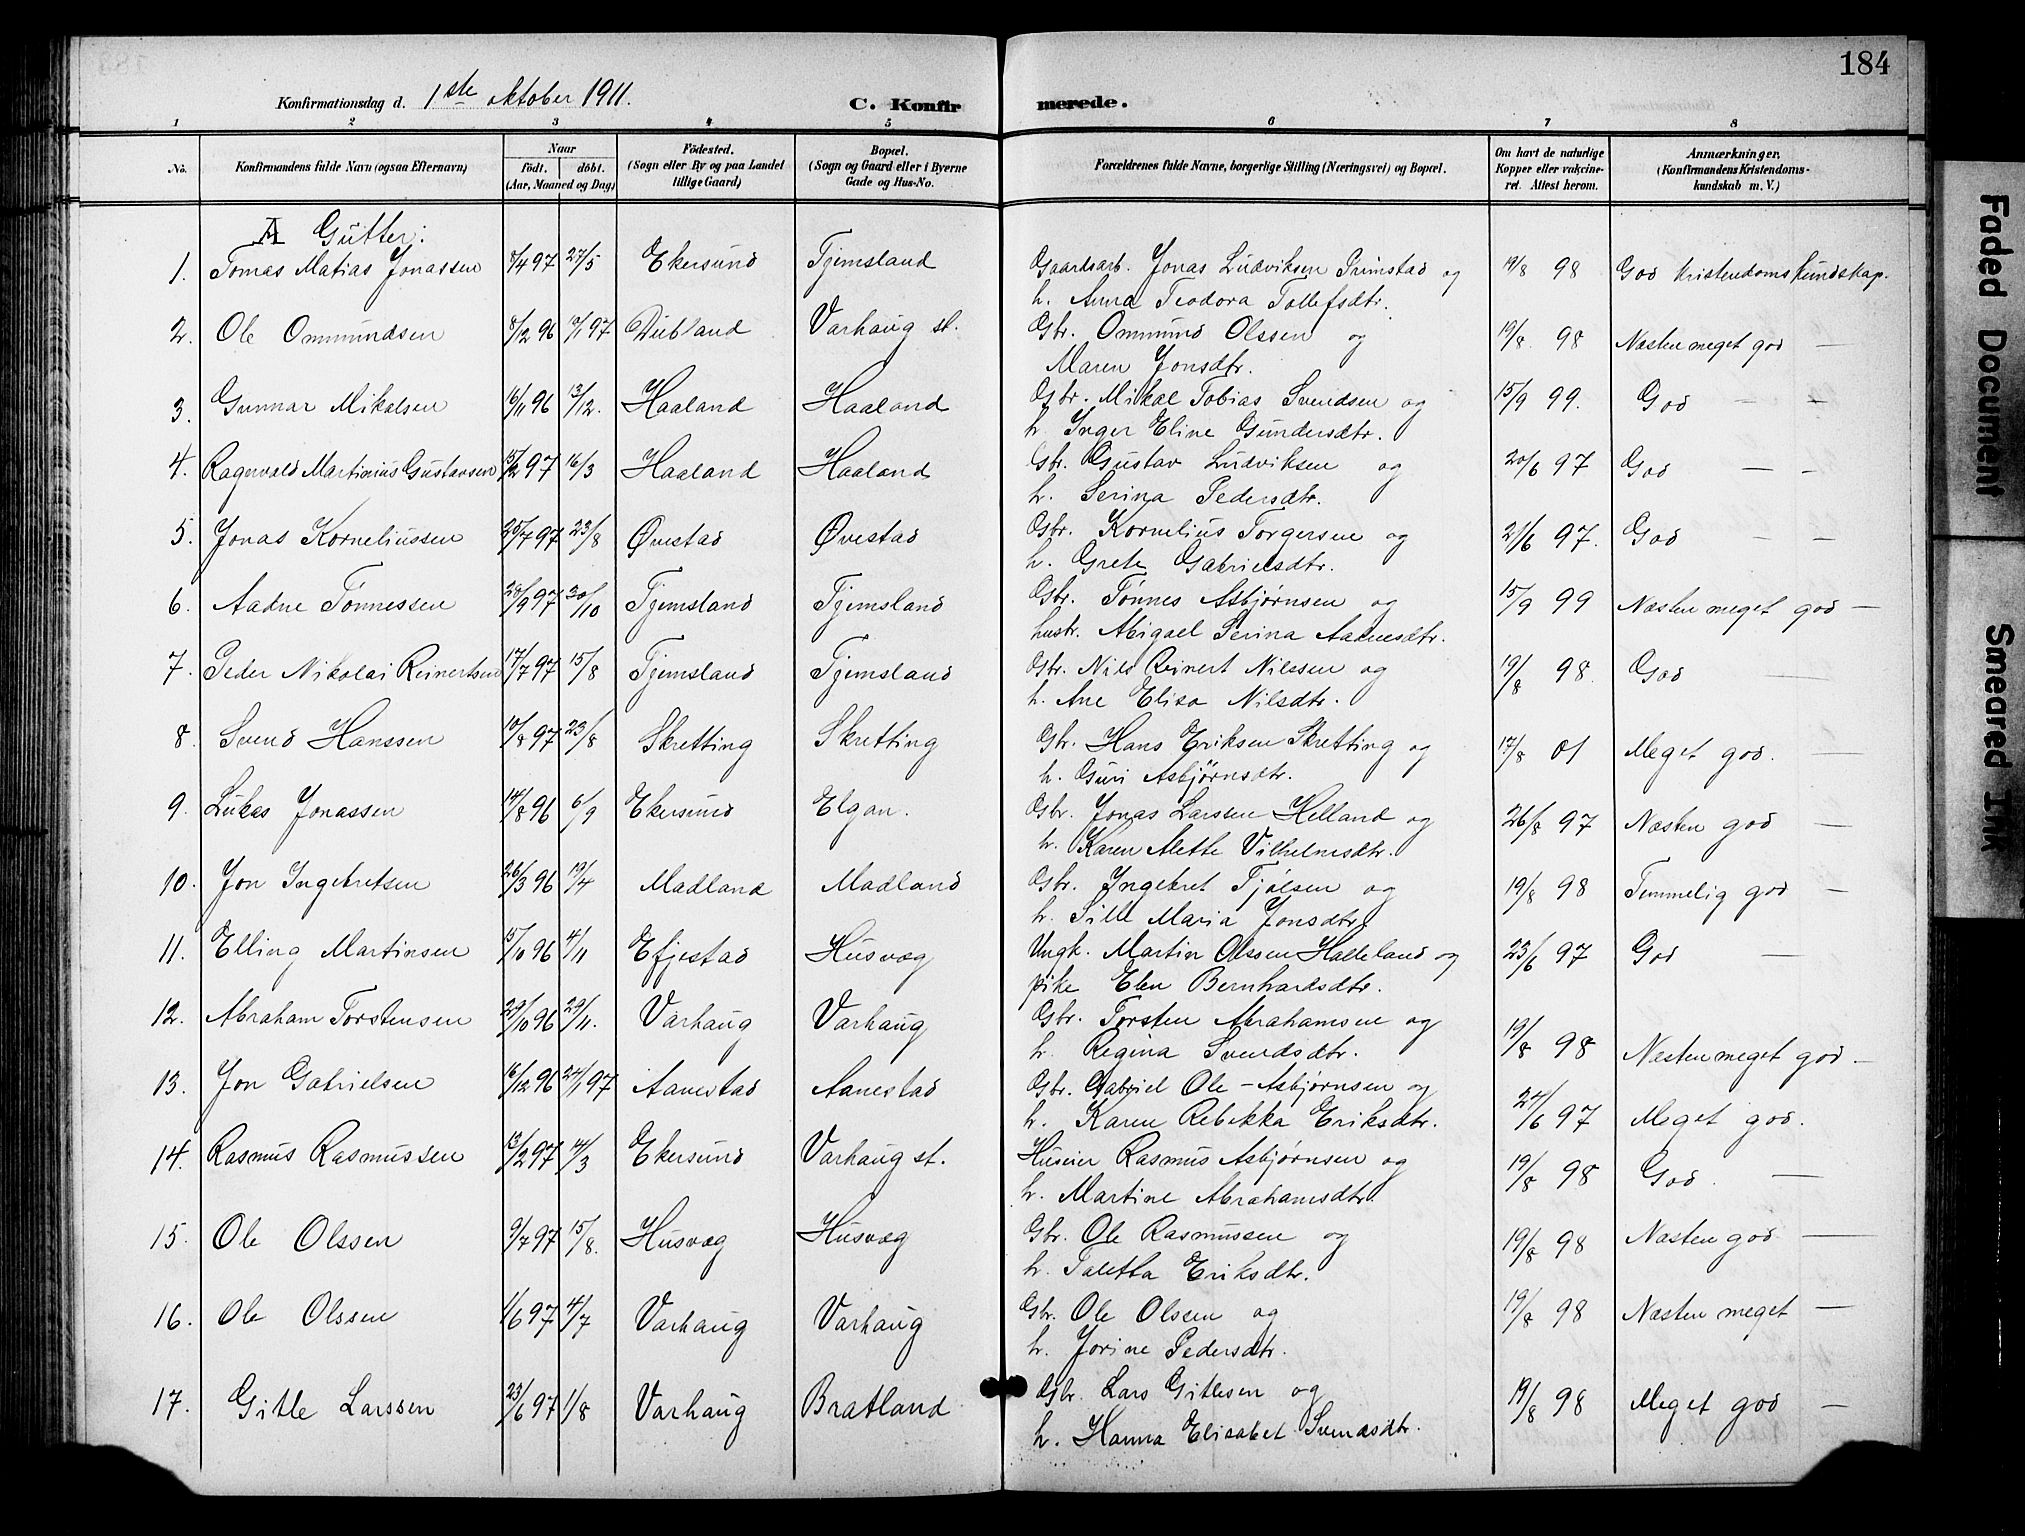 184
Konfirmationsdag d. 1ste oktober 1911. C. Konfirmerede.
1 2 3 4 5 6 7 8
No. Konfirmandens fulde Navn (ogsaa Efternavn) Naar født. døbt. (Aar, Maaned og Dag) Fødested. (Sogn eller By og paa Landet tillige Gaard) Bopæl. (Sogn og Gaard eller i Byerne Gade og Hus-No. Forældrenes fulde Navne, borgerlige Stilling (Næringsvei) og Bopæl. Om havt de naturlige Kopper eller vakcineret. Attest herom. Anmærkninger. (Konfirmandens Kristendomskundskab m. V.)
A Gutter:
1. Tomas Matias Jonassen 8/4 97 27/5 Ekersund Tjemsland Gaardsarb. Jonas Ludviksen Grimstad og 19/8 98 God Kristendomskundskap.
h. Anna Teodora Tollefsdtr.
2. Ole Ommundsen 8/12 96 17/1 97 Dubland Varhaug st. Gbr. Ommund Olssen og 19/8 98 Næsten meget god —
Maren Jonsdtr.
3. Gunnar Mikalsen 16/11 96 13/12. Haaland Haaland Gbr. Mikal Tobias Svendsen og 15/9 99. God — -
h. Inger Eline Gundersdtr.
4. Ragnvald Martinius Gustavsen 15/2 97 16/3 Haaland Haaland Gbr. Gustav Ludviksen og 20/6 97 God — -
h. Serina Pedersdtr.
5. Jonas Korneliussen 25/7 97 23/8 Øvestad Øvestad Gbr. Kornelius Torgersen og 21/6 97. God — —
h. Grete Gabrielsdtr.
6. Aadne Tønnessen 20/9 97 30/10 Tjemsland Tjemsland Gbr. Tønnes Asbjørnsen og 15/9 99 Næsten meget god —
hustr. Abigael Serina Aadnesdtr.
7. Peder Nikolai Reinertsen 17/7 97 15/8 Tjemsland Tjemsland Gbr. Nils Reinert Nilssen og 19/8 98. God —
h. Ane Elisa Nilsdtr.
8. Svend Hanssen 10/8 97 23/8 Skretting Skretting Gbr. Hans Eriksen Skretting og 17/8 01 Meget god. —
h. Guri Asbjørnsdtr.
9. Lukas Jonassen 14/8 96 6/9 Ekersund Elgan. Gbr. Jonas Larssen Helland og 26/8 97 Næsten god —
h. Karen Alette Vilhelmsdtr.
10. Jon Ingebretsen 26/3 96 19/4 Madland Madland Gbr. Ingebret Tjølsen og 19/8 98 Temmelig god —
h. Sille Maria Jonsdtr.
11. Elling Martinsen 15/10 96 4/11 Efjestad Husvæg Ungk. Martin Olssen Halleland og 23/6 97 God —
pike Elen Bernhardsdtr.
12. Abraham Torstensen 23/10 96 29/11. Varhaug Varhaug Gbr. Torsten Abrahamsen og 19/8 98 Næsten meget god —
h. Regina Svendsdtr.
13. Jon Gabrielsen 16/12 96 24/1 97 Aanestad Aanestad Gbr. Gabriel Ole - Asbjørnsen og 24/6 97 Meget god.
h. Karen Rebekka Eriksdtr.
14. Rasmus Rasmussen 13/2 97 14/3 Ekersund Varhaug st. Huseier Rasmus Asbjørnsen og 19/8 98 God. —
h. Martine Abrahamsdtr.
15. Ole Olssen 9/7 97 15/8. Husvæg Husvæg Gbr. Ole Rasmussen og 19/8 98 Næsten god. —
h. Taletta Eriksdtr.
16. Ole Olssen 1/6 97 4/7 Varhaug Varhaug Gbr. Ole Olssen og 19/8 98 Næsten meget —
h. Jorine Pedersdtr.
17. Gitle Larssen 23/6 97 1/8 Varhaug Bratland Gbr. Lars Gitlesen og 19/8 98 Meget god —
h. Hanna Elisabet Svendsdtr.
Faded Document
Smeared Ink